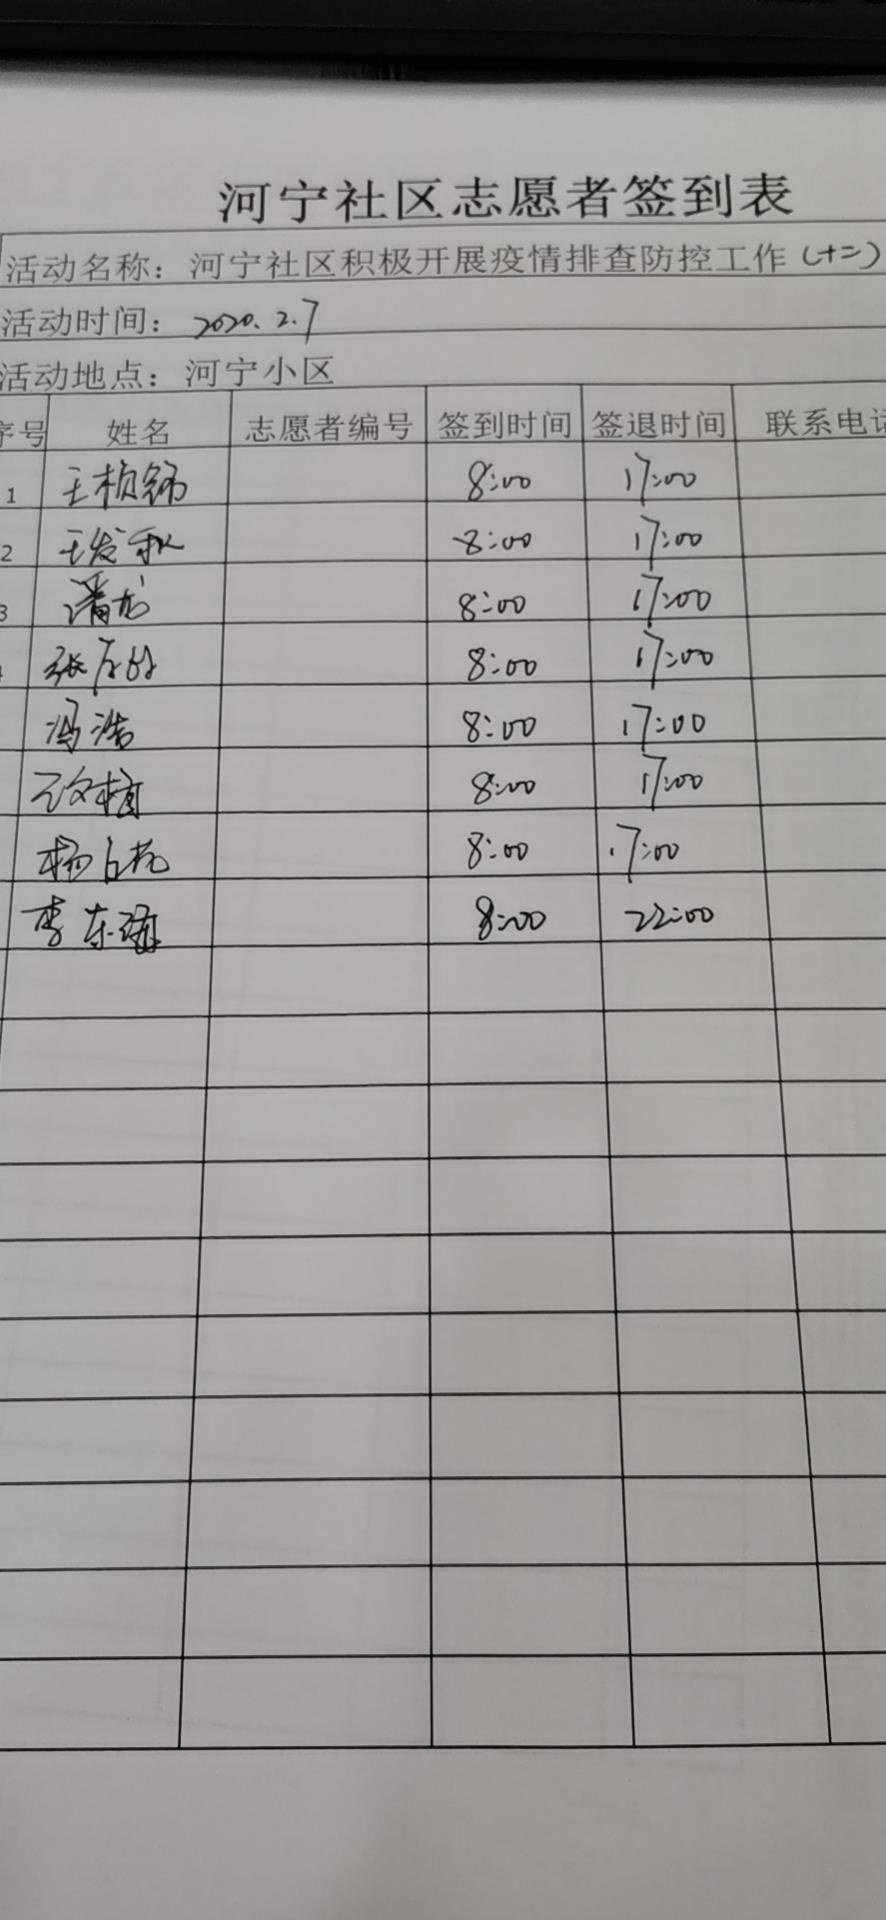 河宁社区志愿者签到表
活动名称：河宁社区积极开展疫情排查防控工作（十二）
活动时间：2020.2.7
活动地点：河宁小区
序号 姓名 志愿者编号 签到时间 签退时间 联系电话
1 王桢锦 8:00 17:00
2 王发 8:00 17:00
3 潘龙 8:00 17:00
张 8:00 17:00
冯浩 8:00 17:00
8:00 17:00
杨 8:00 17:00
李东海 8:00 22:00